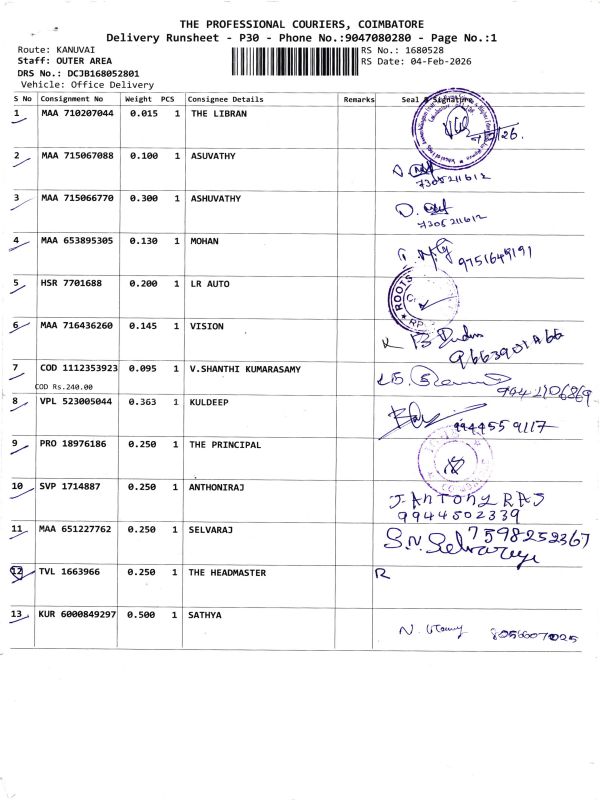 THE PROFESSIONAL COURIERS, COIMBATORE
Delivery Runsheet - P30 - Phone No.:9047080280 - Page No.:1
Route: KANUVAI RS No.: 1680528
Staff: OUTER AREA RS Date: 04-Feb-2026
DRS No.: DCJB168052801
Vehicle: Office Delivery
S No Consignment No Weight PCS Consignee Details Remarks Seal & Signature
1 MAA 710207044 0.015 1 THE LIBRAN
2 MAA 715067088 0.100 1 ASUVATHY
7305211612
3 MAA 715066770 0.300 1 ASHUVATHY D.
7305211612
4 MAA 653895305 0.130 1 MOHAN 9751649191
5 HSR 7701688 0.200 1 LR AUTO ROOTS
6 MAA 716436260 0.145 1 VISION
7 COD 1112353923 0.095 1 V.SHANTHI KUMARASAMY
COD Rs.240.00
8 VPL 523005044 0.363 1 KULDEEP
9944559117
9 PRO 18976186 0.250 1 THE PRINCIPAL
10 SVP 1714887 0.250 1 ANTHONIRAJ J. ANTONY RAJ
9944502339
11 MAA 651227762 0.250 1 SELVARAJ 7598252367
12 TVL 1663966 0.250 1 THE HEADMASTER R
13 KUR 6000849297 0.500 1 SATHYA